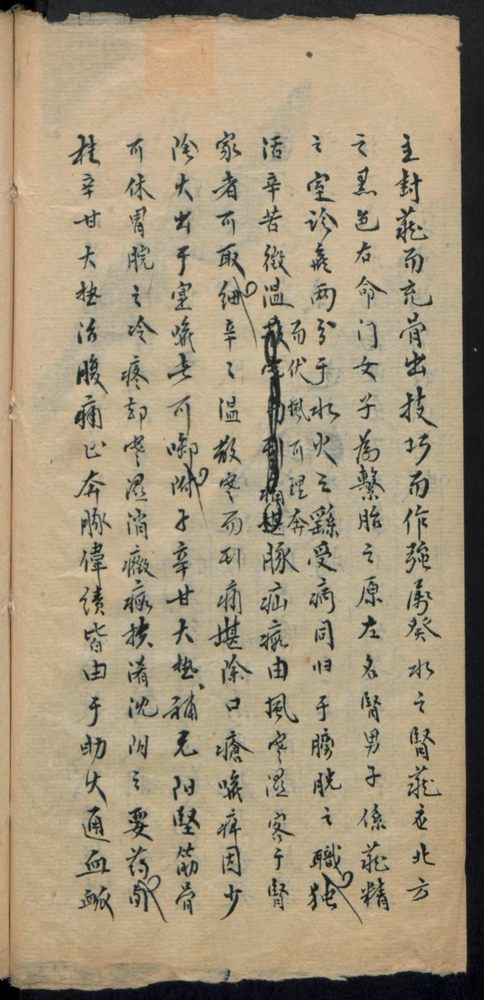 主封蔵而充骨出技巧而作強属癸水之腎蔵在北方
之黒色右命门女子為繫胎之原左名腎男子係蔵精
之室診疾两分于水火之繇受病同归于膀胱之職独
活辛苦微温而伏風可理奔豚疝瘕由風寒湿客于腎
家者可取细辛〻温散寒而利痛堪除口瘡喉痺因少
陰火出于室喉者可啣附子辛甘大热補元阳堅筋骨
可休胃脘之冷疼却寒湿消癥瘕扶淹沈阴之要药肉
桂辛甘大热治腹痛止奔豚偉績皆由于助火通血脈